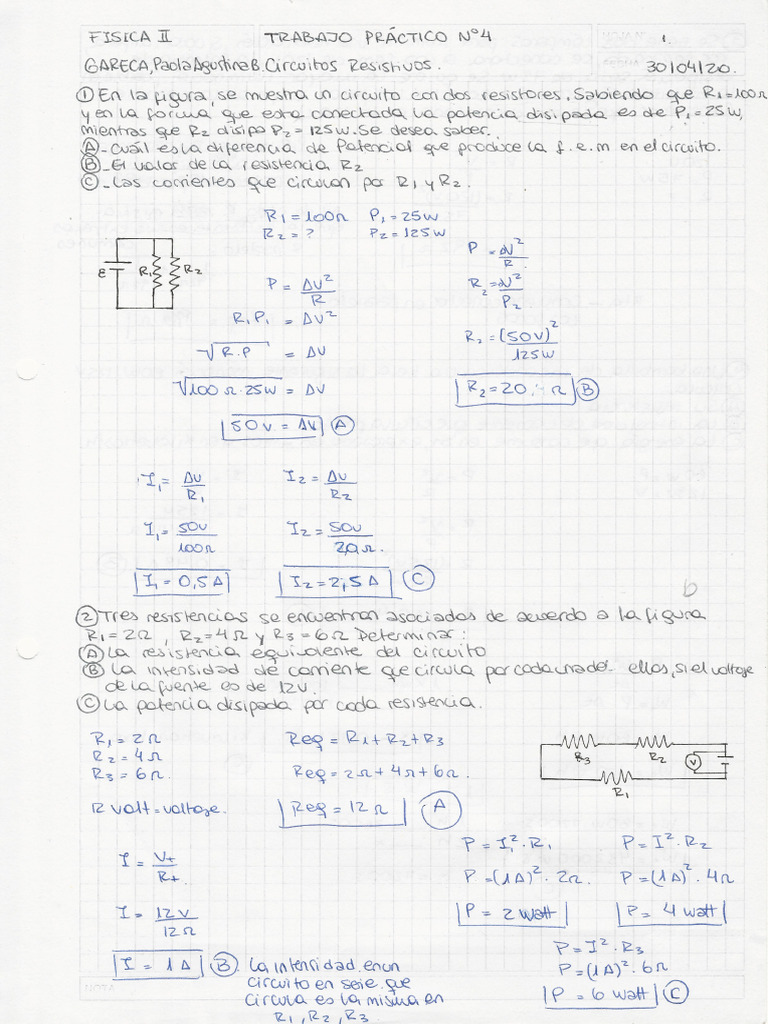 FISICA II TRABAJO PRÁCTICO N°4 1.
GARECA, Paola Agustina B. Circuitos Resistivos. 30/04/20.
① En la figura, se muestra un circuito con dos resistores. Sabiendo que R₁=100Ω
y en la forma que esta conectada la potencia disipada es de P₁=25W,
mientras que R₂ disipa P₂=125W. Se desea saber.
Ⓐ-Cuál es la diferencia de Potencial que produce la f.e.m en el circuito.
Ⓑ-El valor de la resistencia R₂
Ⓒ-Las corrientes que circulan por R₁ y R₂.
R₁=100Ω P₁=25W
R₂=? P₂=125W
ε R₁ R₂
P = ΔV²/R
R₁P₁ = ΔV²
√R.P = ΔV
√100Ω.25W = ΔV
50V = ΔV Ⓐ
P = ΔV²/R
R₂ = ΔV²/P₂
R₂ = (50V)²/125W
R₂=20 Ω Ⓑ
I₁ = ΔV/R₁ I₂ = ΔV/R₂
I₁ = 50V/100Ω I₂ = 50V/20Ω.
I₁=0,5A I₂=2,5A Ⓒ
b
② Tres resistencias se encuentran asociados de acuerdo a la figura
R₁=2Ω, R₂=4Ω y R₃=6Ω Determinar:
Ⓐ La resistencia equivalente del circuito
Ⓑ La intensidad de corriente que circula por cada una de ellos, si el voltaje
de la fuente es de 12V.
Ⓒ La potencia disipada por cada resistencia.
R₁=2Ω
R₂=4Ω
R₃=6Ω.
R volt=voltaje.
Req = R₁+R₂+R₃
Req = 2Ω+4Ω+6Ω.
Req = 12Ω Ⓐ
R₃ R₂ V R₁
I = V₊/R₊
I = 12V/12Ω
I = 1A Ⓑ La intensidad en un
circuito en serie, que
circula es la misma en
R₁, R₂, R₃.
P = I₁².R₁ P = I².R₂
P = (1A)².2Ω. P = (1A)².4Ω
P = 2 watt P = 4 watt
P = I².R₃
P = (1A)².6Ω
P = 6 watt Ⓒ